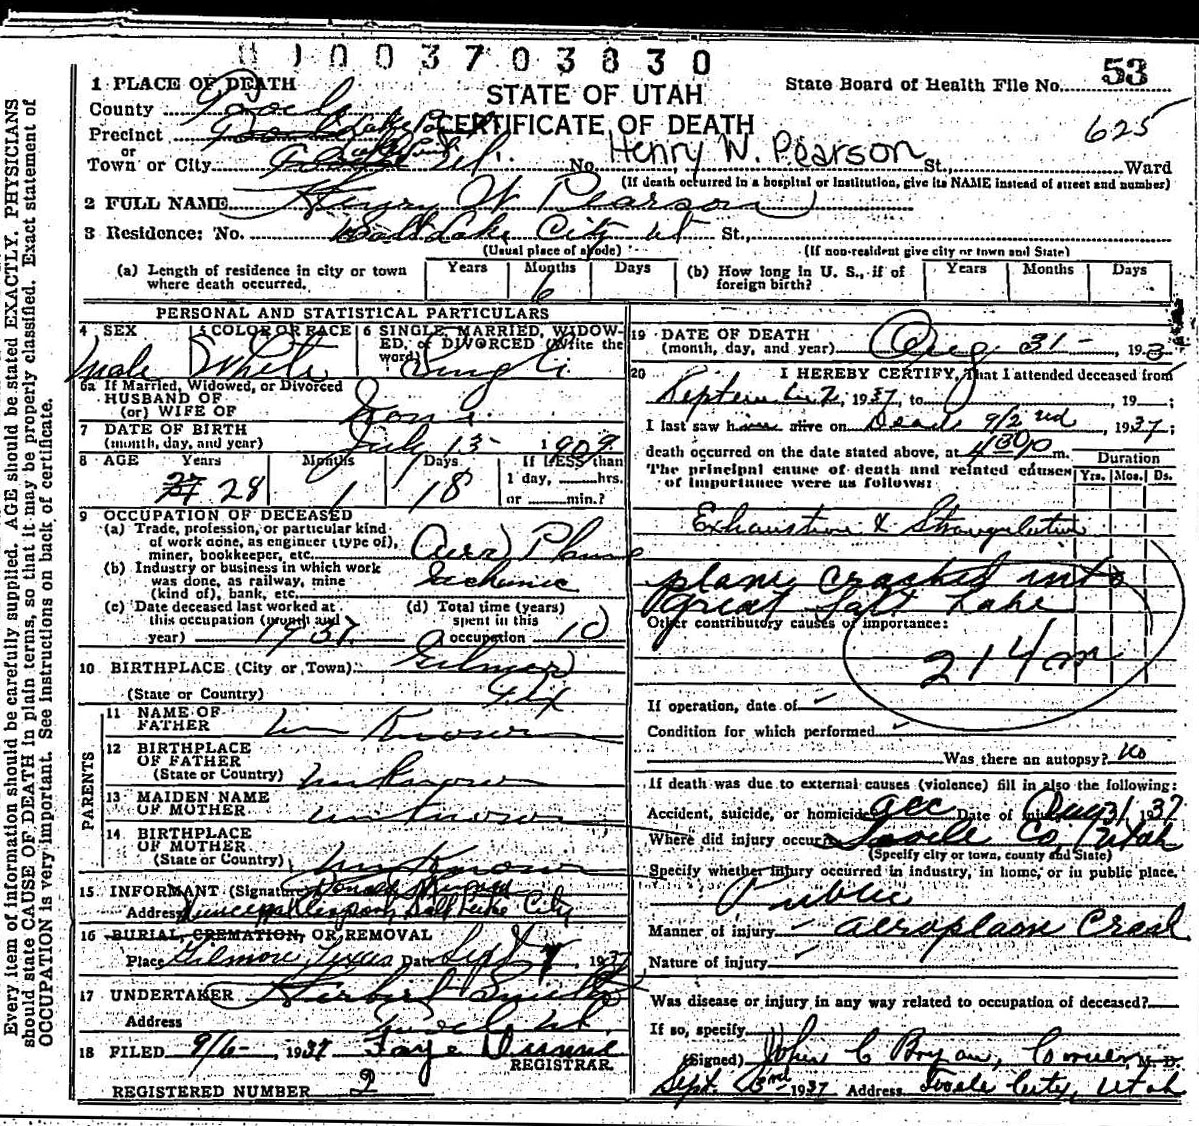 01003703830
1 PLACE OF DEATH
STATE OF UTAH
State Board of Health File No. 53
County Tooele
CERTIFICATE OF DEATH
625
Precinct Lake Point
or
Town or City Lake Point No. Henry W. Pearson St., Ward
(If death occurred in a hospital or institution, give its NAME instead of street and number)
2 FULL NAME Henry W Pearson
3 Residence: No. Salt Lake City Ut St.,
(Usual place of abode) (If non-resident give city or town and State)
(a) Length of residence in city or town where death occurred. Years Months 6 Days
(b) How long in U. S., if of foreign birth? Years Months Days
PERSONAL AND STATISTICAL PARTICULARS
4 SEX Male
5 COLOR OR RACE White
6 SINGLE, MARRIED, WIDOWED, or DIVORCED (Write the word)
Single
6a If Married, Widowed, or Divorced
HUSBAND OF
(or) WIFE OF
7 DATE OF BIRTH
(month, day, and year) July 13- 1909
8 AGE Years 28 Months 1 Days 18 If LESS than
1 day, hrs.
or min.?
9 OCCUPATION OF DECEASED
(a) Trade, profession, or particular kind
of work done, as engineer (type of),
miner, bookkeeper, etc. Plane
(b) Industry or business in which work
was done, as railway, mine
(kind of), bank, etc. Mechanic
(c) Date deceased last worked at
this occupation (month and
year) 1937
(d) Total time (years)
spent in this
occupation 10
10 BIRTHPLACE (City or Town) Gilmer
(State or Country) Tex
PARENTS
11 NAME OF
FATHER Un Known
12 BIRTHPLACE
OF FATHER
(State or Country) unknown
13 MAIDEN NAME
OF MOTHER unknown
14 BIRTHPLACE
OF MOTHER
(State or Country) un Known
15 INFORMANT (Signature) Donald
Address Salt Lake City
16 BURIAL, CREMATION, OR REMOVAL
Place Gilmore, Texas Date Sept 7, 1937
17 UNDERTAKER Herbert Smith
Address Tooele Ut.
18 FILED 9/6-, 1937 Faye
REGISTRAR.
REGISTERED NUMBER 2
19 DATE OF DEATH
(month, day, and year) Aug 31-, 193
20 I HEREBY CERTIFY, That I attended deceased from
September 2, 1937, to , 19 ;
I last saw him alive on Dead 9/2nd, 1937;
death occurred on the date stated above, at 430 p m.
The principal cause of death and related causes
of importance were as follows:
Duration
Yrs. Mos. Ds.
Exhaustion & Strangulation
plane crashed into
great Salt Lake
Other contributory causes of importance:
214am
If operation, date of
Condition for which performed
Was there an autopsy? No
If death was due to external causes (violence) fill in also the following:
Accident, suicide, or homicide acc Date of injury Aug 31, 1937
Where did injury occur Tooele Co, Utah
(Specify city or town, county and State)
Specify whether injury occurred in industry, in home, or in public place.
Public
Manner of injury aeroplane Crash
Nature of injury
Was disease or injury in any way related to occupation of deceased?
If so, specify
(Signed) John C Bryan, Coroner M. D.
Sept. 1937 Address Tooele City, Utah
Every item of information should be carefully supplied. AGE should be stated EXACTLY. PHYSICIANS
should state CAUSE OF DEATH in plain terms, so that it may be properly classified. Exact statement of
OCCUPATION is very important. See instructions on back of certificate.